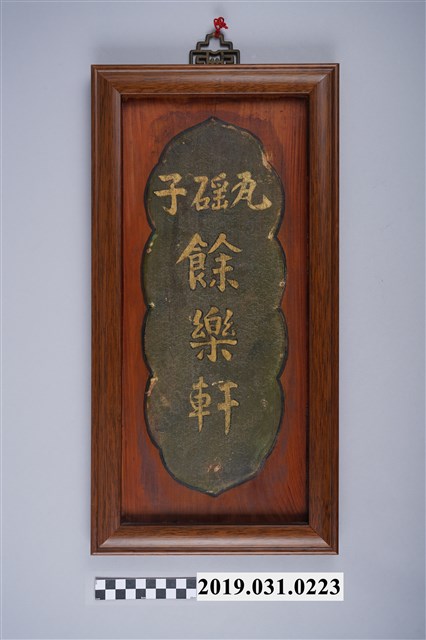 瓦磘子
餘樂軒
2019.031.0223